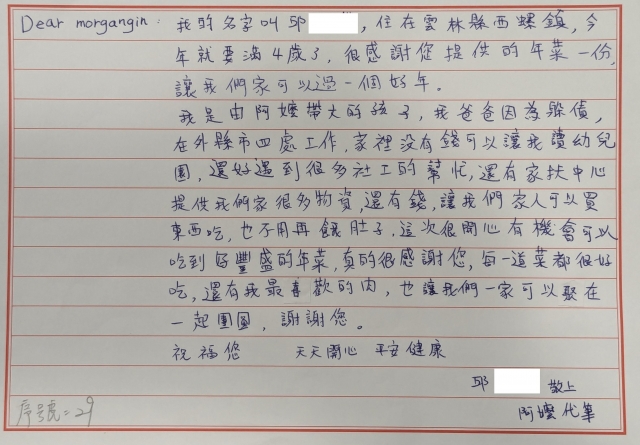 Dear morgangin: 我的名字叫邱 , 住在雲林縣西螺鎮, 今
年就要滿4歲了, 很感謝您提供的年菜一份,
讓我們家可以過一個好年。
我是由阿嬤帶大的孩子, 我爸爸因為躲債,
在外縣市四處工作, 家裡沒有錢可以讓我讀幼兒
園, 還好遇到很多社工的幫忙, 還有家扶中心
提供我們家很多物資, 還有錢, 讓我們家人可以買
東西吃, 也不用再餓肚子, 這次很開心有機會可以
吃到好豐盛的年菜, 真的很感謝您, 每一道菜都很好
吃, 還有我最喜歡的肉, 也讓我們一家可以聚在
一起團圓, 謝謝您。
祝福您 天天開心 平安健康
邱 敬上
阿嬤代筆
序號=29